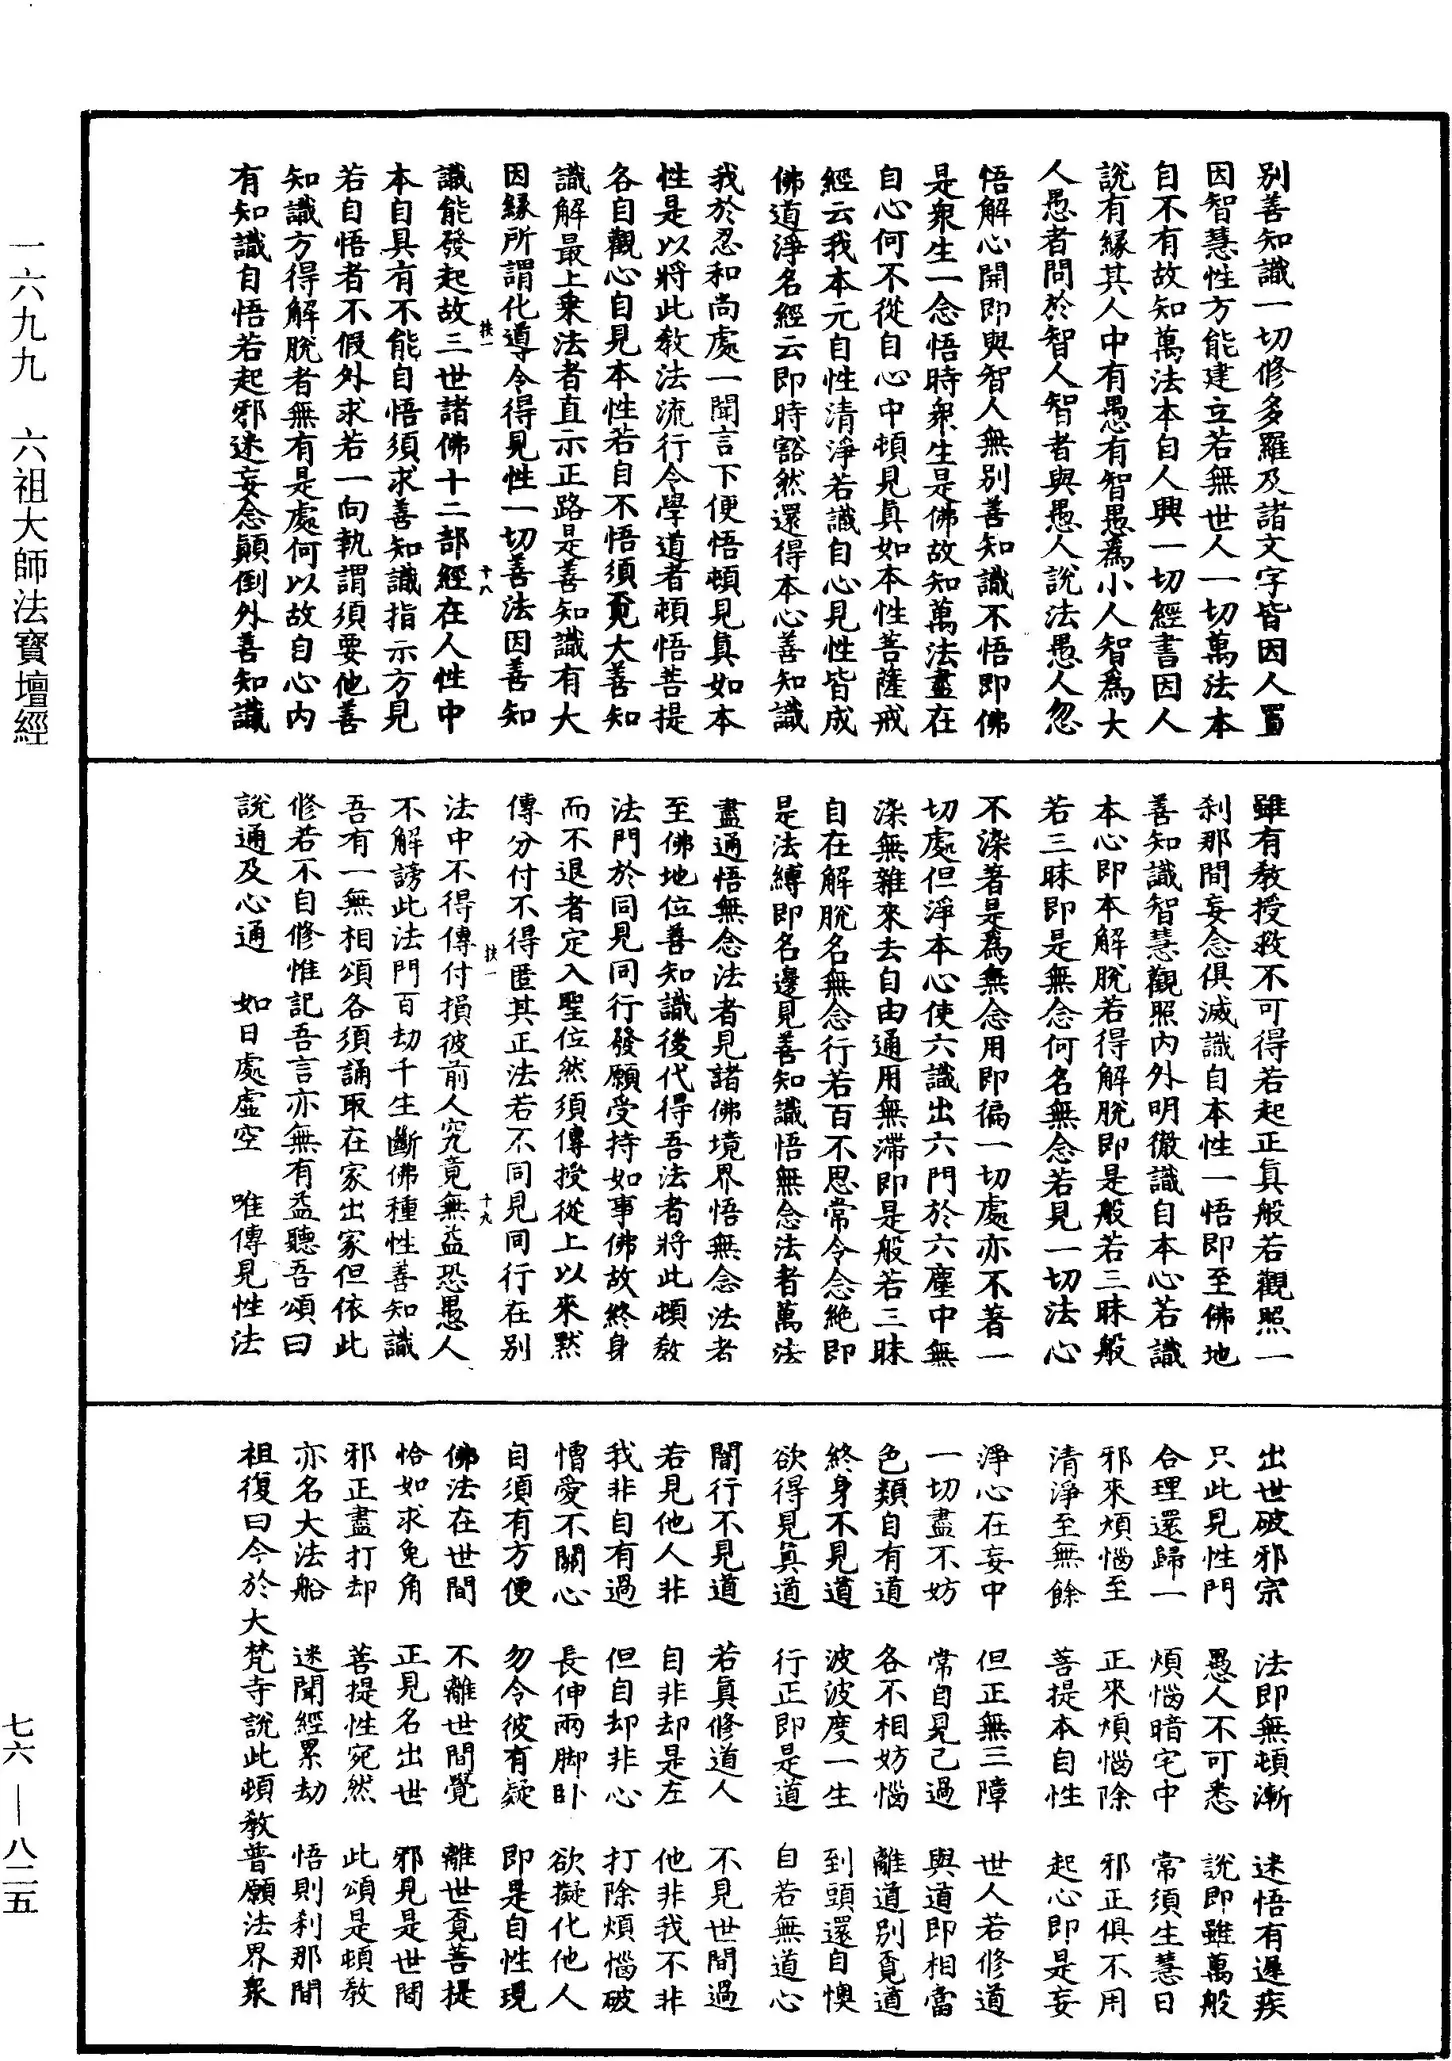 別善知識一切修多羅及諸文字皆因人置
因智慧性方能建立若無世人一切萬法本
自不有故知萬法本自人興一切經書因人
說有緣其人中有愚有智愚為小人智為大
人愚者問於智人智者與愚人說法愚人忽
悟解心開即與智人無別善知識不悟即佛
是衆生一念悟時衆生是佛故知萬法盡在
自心何不從自心中頓見真如本性菩薩戒
經云我本元自性清淨若識自心見性皆成
佛道淨名經云即時豁然還得本心善知識
我於忍和尚處一聞言下便悟頓見真如本
性是以將此教法流行令學道者頓悟菩提
各自觀心自見本性若自不悟須覓大善知
識解最上乘法者直示正路是善知識有大
因緣所謂化導令得見性一切善法因善知
扶一
十八
識能發起故三世諸佛十二部經在人性中
本自具有不能自悟須求善知識指示方見
若自悟者不假外求若一向執謂須要他善
知識方得解脫者無有是處何以故自心內
有知識自悟若起邪迷妄念顛倒外善知識
雖有教授救不可得若起正真般若觀照一
刹那間妄念俱滅識自本性一悟即至佛地
善知識智慧觀照內外明徹識自本心若識
本心即本解脫若得解脫即是般若三昧般
若三昧即是無念何名無念若見一切法心
不染著是為無念用即徧一切處亦不著一
切處但淨本心使六識出六門於六塵中無
染無雜來去自由通用無滯即是般若三昧
自在解脫名無念行若百不思常令念絕即
是法縛即名邊見善知識悟無念法者萬法
盡通悟無念法者見諸佛境界悟無念法者
至佛地位善知識後代得吾法者將此頓教
法門於同見同行發願受持如事佛故終身
而不退者定入聖位然須傳授從上以來默
傳分付不得匿其正法若不同見同行在別
扶一
十九
法中不得傳付損彼前人究竟無益恐愚人
不解謗此法門百劫千生斷佛種性善知識
吾有一無相頌各須誦取在家出家但依此
修若不自修惟記吾言亦無有益聽吾頌曰
說通及心通 如日處虛空 唯傳見性法
出世破邪宗 法即無頓漸 迷悟有遲疾
只此見性門 愚人不可悉 說即雖萬般
合理還歸一 煩惱暗宅中 常須生慧日
邪來煩惱至 正來煩惱除 邪正俱不用
清淨至無餘 菩提本自性 起心即是妄
淨心在妄中 但正無三障 世人若修道
一切盡不妨 常自見己過 與道即相當
色類自有道 各不相妨惱 離道別覓道
終身不見道 波波度一生 到頭還自懊
欲得見真道 行正即是道 自若無道心
闇行不見道 若真修道人 不見世間過
若見他人非 自非却是左 他非我不非
我非自有過 但自却非心 打除煩惱破
憎愛不關心 長伸兩脚卧 欲擬化他人
自須有方便 勿令彼有疑 即是自性現
佛法在世間 不離世間覺 離世覓菩提
恰如求兔角 正見名出世 邪見是世間
邪正盡打却 菩提性宛然 此頌是頓教
亦名大法船 迷聞經累劫 悟則刹那間
祖復曰今於大梵寺說此頓教普願法界衆
一六九九 六祖大師法寶壇經
七六—八二五